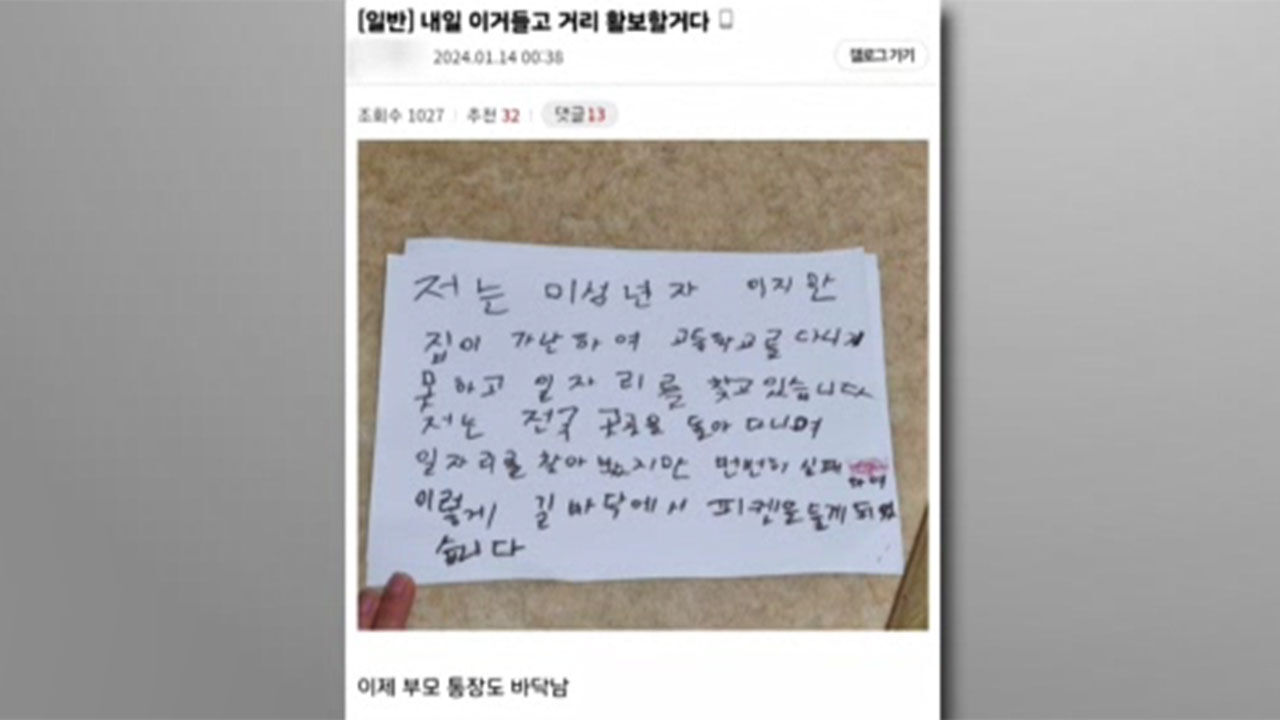 [일반] 내일 이거들고 거리 활보할거다
2024.01.14 00:38
갤로그 가기
조회수 1027 추천 32 댓글 13
저는 미성년자 이지만
집이 가난하여 고등학교를 다니지
못하고 일자리를 찾고 있습니다
저는 전국 곳곳을 돌아 다니며
일자리를 찾아 봤지만 번번히 실패
하여
이렇게 길바닥에서 피켓을 들게 되었
습니다
이제 부모 통장도 바닥남